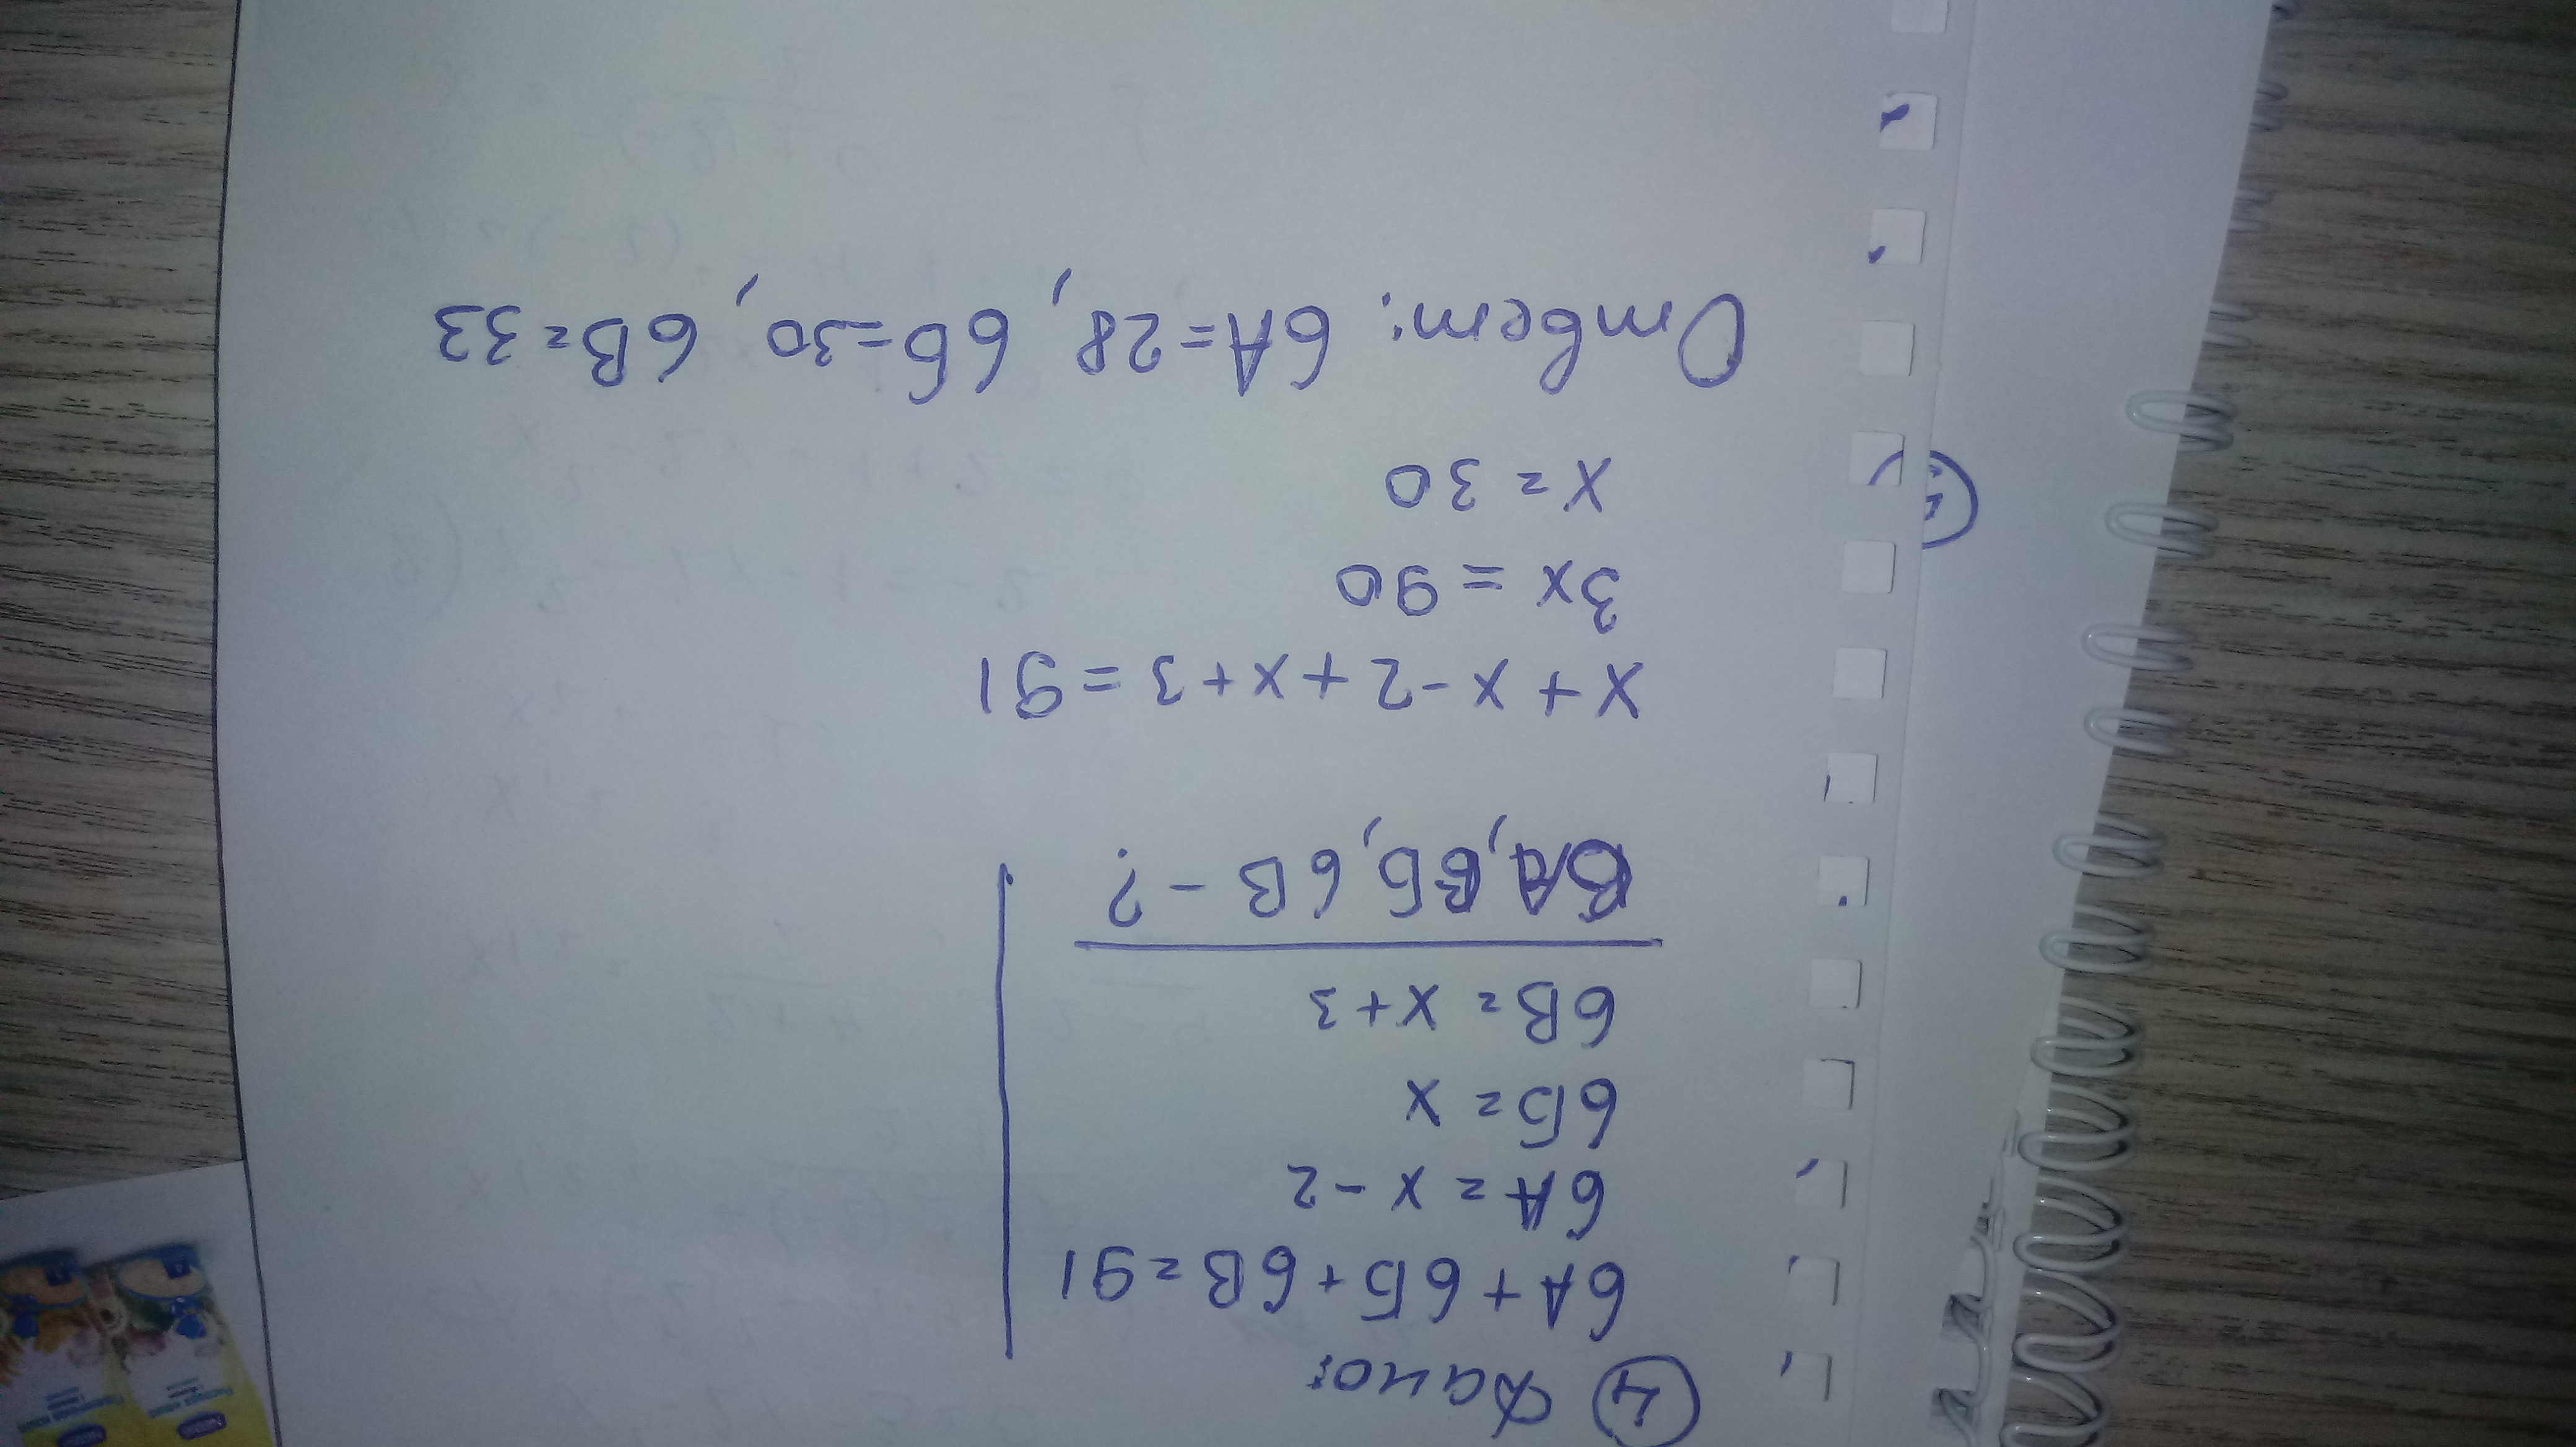 ④ Дано:
6А + 6Б + 6В = 91
6А = x - 2
6Б = x
6В = x + 3
6А, 6Б, 6В - ?
x + x - 2 + x + 3 = 91
3x = 90
x = 30
Ответ: 6А = 28, 6Б = 30, 6В = 33